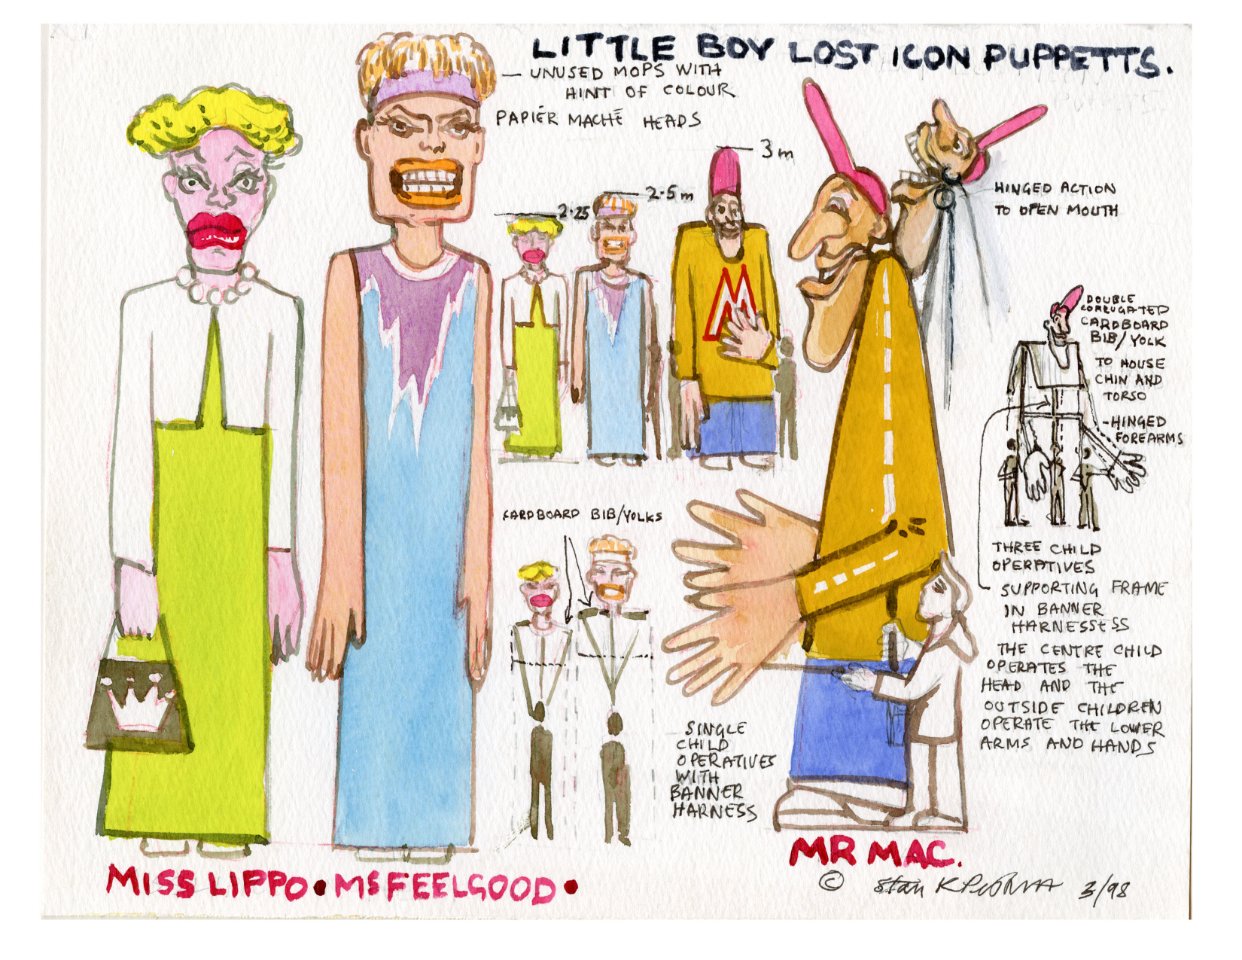 LITTLE BOY LOST ICON PUPPETTS.
UNUSED MOPS WITH
HINT OF COLOUR
PAPIÉR MACHÉ HEADS
2·25
2·5m
3m
M
HINGED ACTION
TO OPEN MOUTH
DOUBLE
CORUGATED
CARDBOARD
BIB/YOLK
TO HOUSE
CHIN AND
TORSO
HINGED
FOREARMS
CARDBOARD BIB/YOLKS
THREE CHILD
OPERATIVES
SUPPORTING FRAME
IN BANNER
HARNESSESS
THE CENTRE CHILD
OPERATES THE
HEAD AND THE
OUTSIDE CHILDREN
OPERATE THE LOWER
ARMS AND HANDS
SINGLE
CHILD
OPERATIVES
WITH
BANNER
HARNESS
MISS LIPPO • MS FEELGOOD •
MR MAC.
© Stan K 3/98